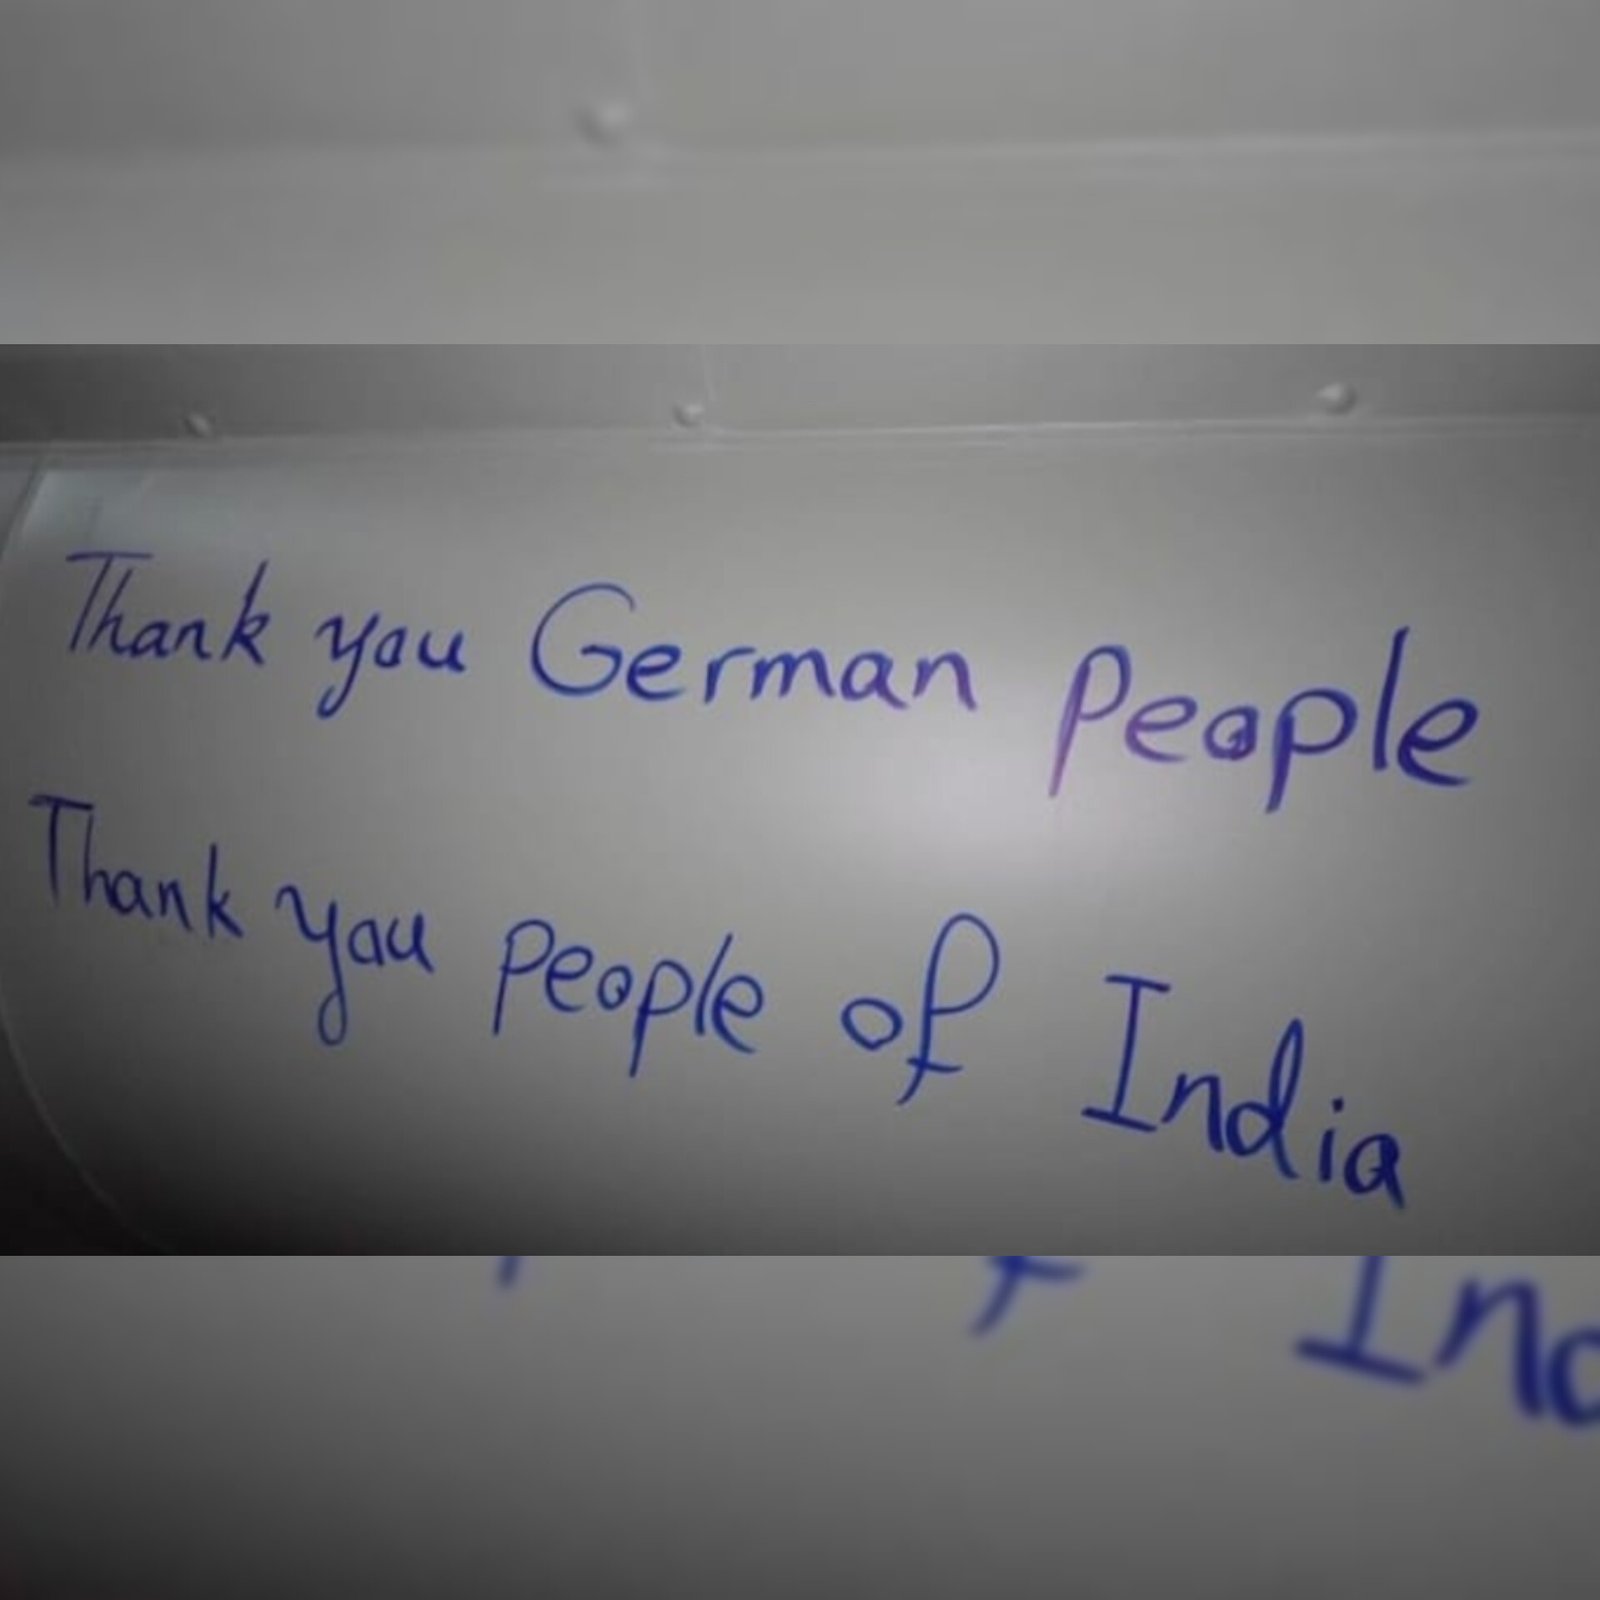 Thank you German People
Thank you People of India